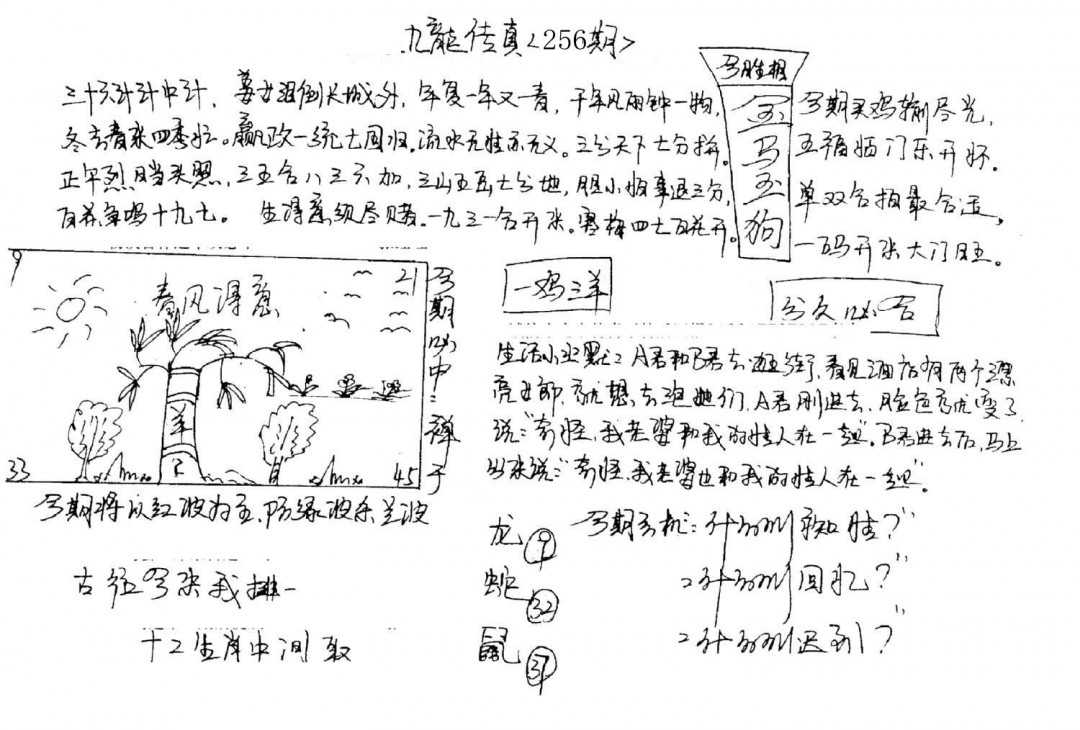 九龍传真<256期>
三十六计计中计，姜女泪倒长城外，年复一年又一青，千年风雨钟一物，
冬去春来四季忙。嬴政一统七国归。流水无情亦无义。三分天下七分拚。
正午烈日当头照，三五合八三六加，三山五岳七分地，胆小怕事退三分，
百花争鸣十九七。 生得意须尽欢。一九三一合开来。寒梅四七百花开。
今期买鸡输尽光，
五福临门乐开怀。
单双合拍最合适，
一码开来大门旺。
金
马
玉
狗
9
21
33
45
春风得意
羊
今期必中：禅子
一鸡三羊
分久必合
生活小幽默：A君和B君去逛街，看见酒店有两个漂
亮女郎，就想去泡她们，A君刚进去，脸色就变了
说："奇怪，我老婆和我的情人在一起"。B君进去后，马上
出来说："奇怪，我老婆也和我的情人在一起"。
今期将以红波为主，防绿波杀兰波
龙 9
蛇 32
鼠 37
今期玄机：什么叫知情？"
什么叫回忆？"
什么叫迟到？"
古往今来我排一
十二生肖中间取